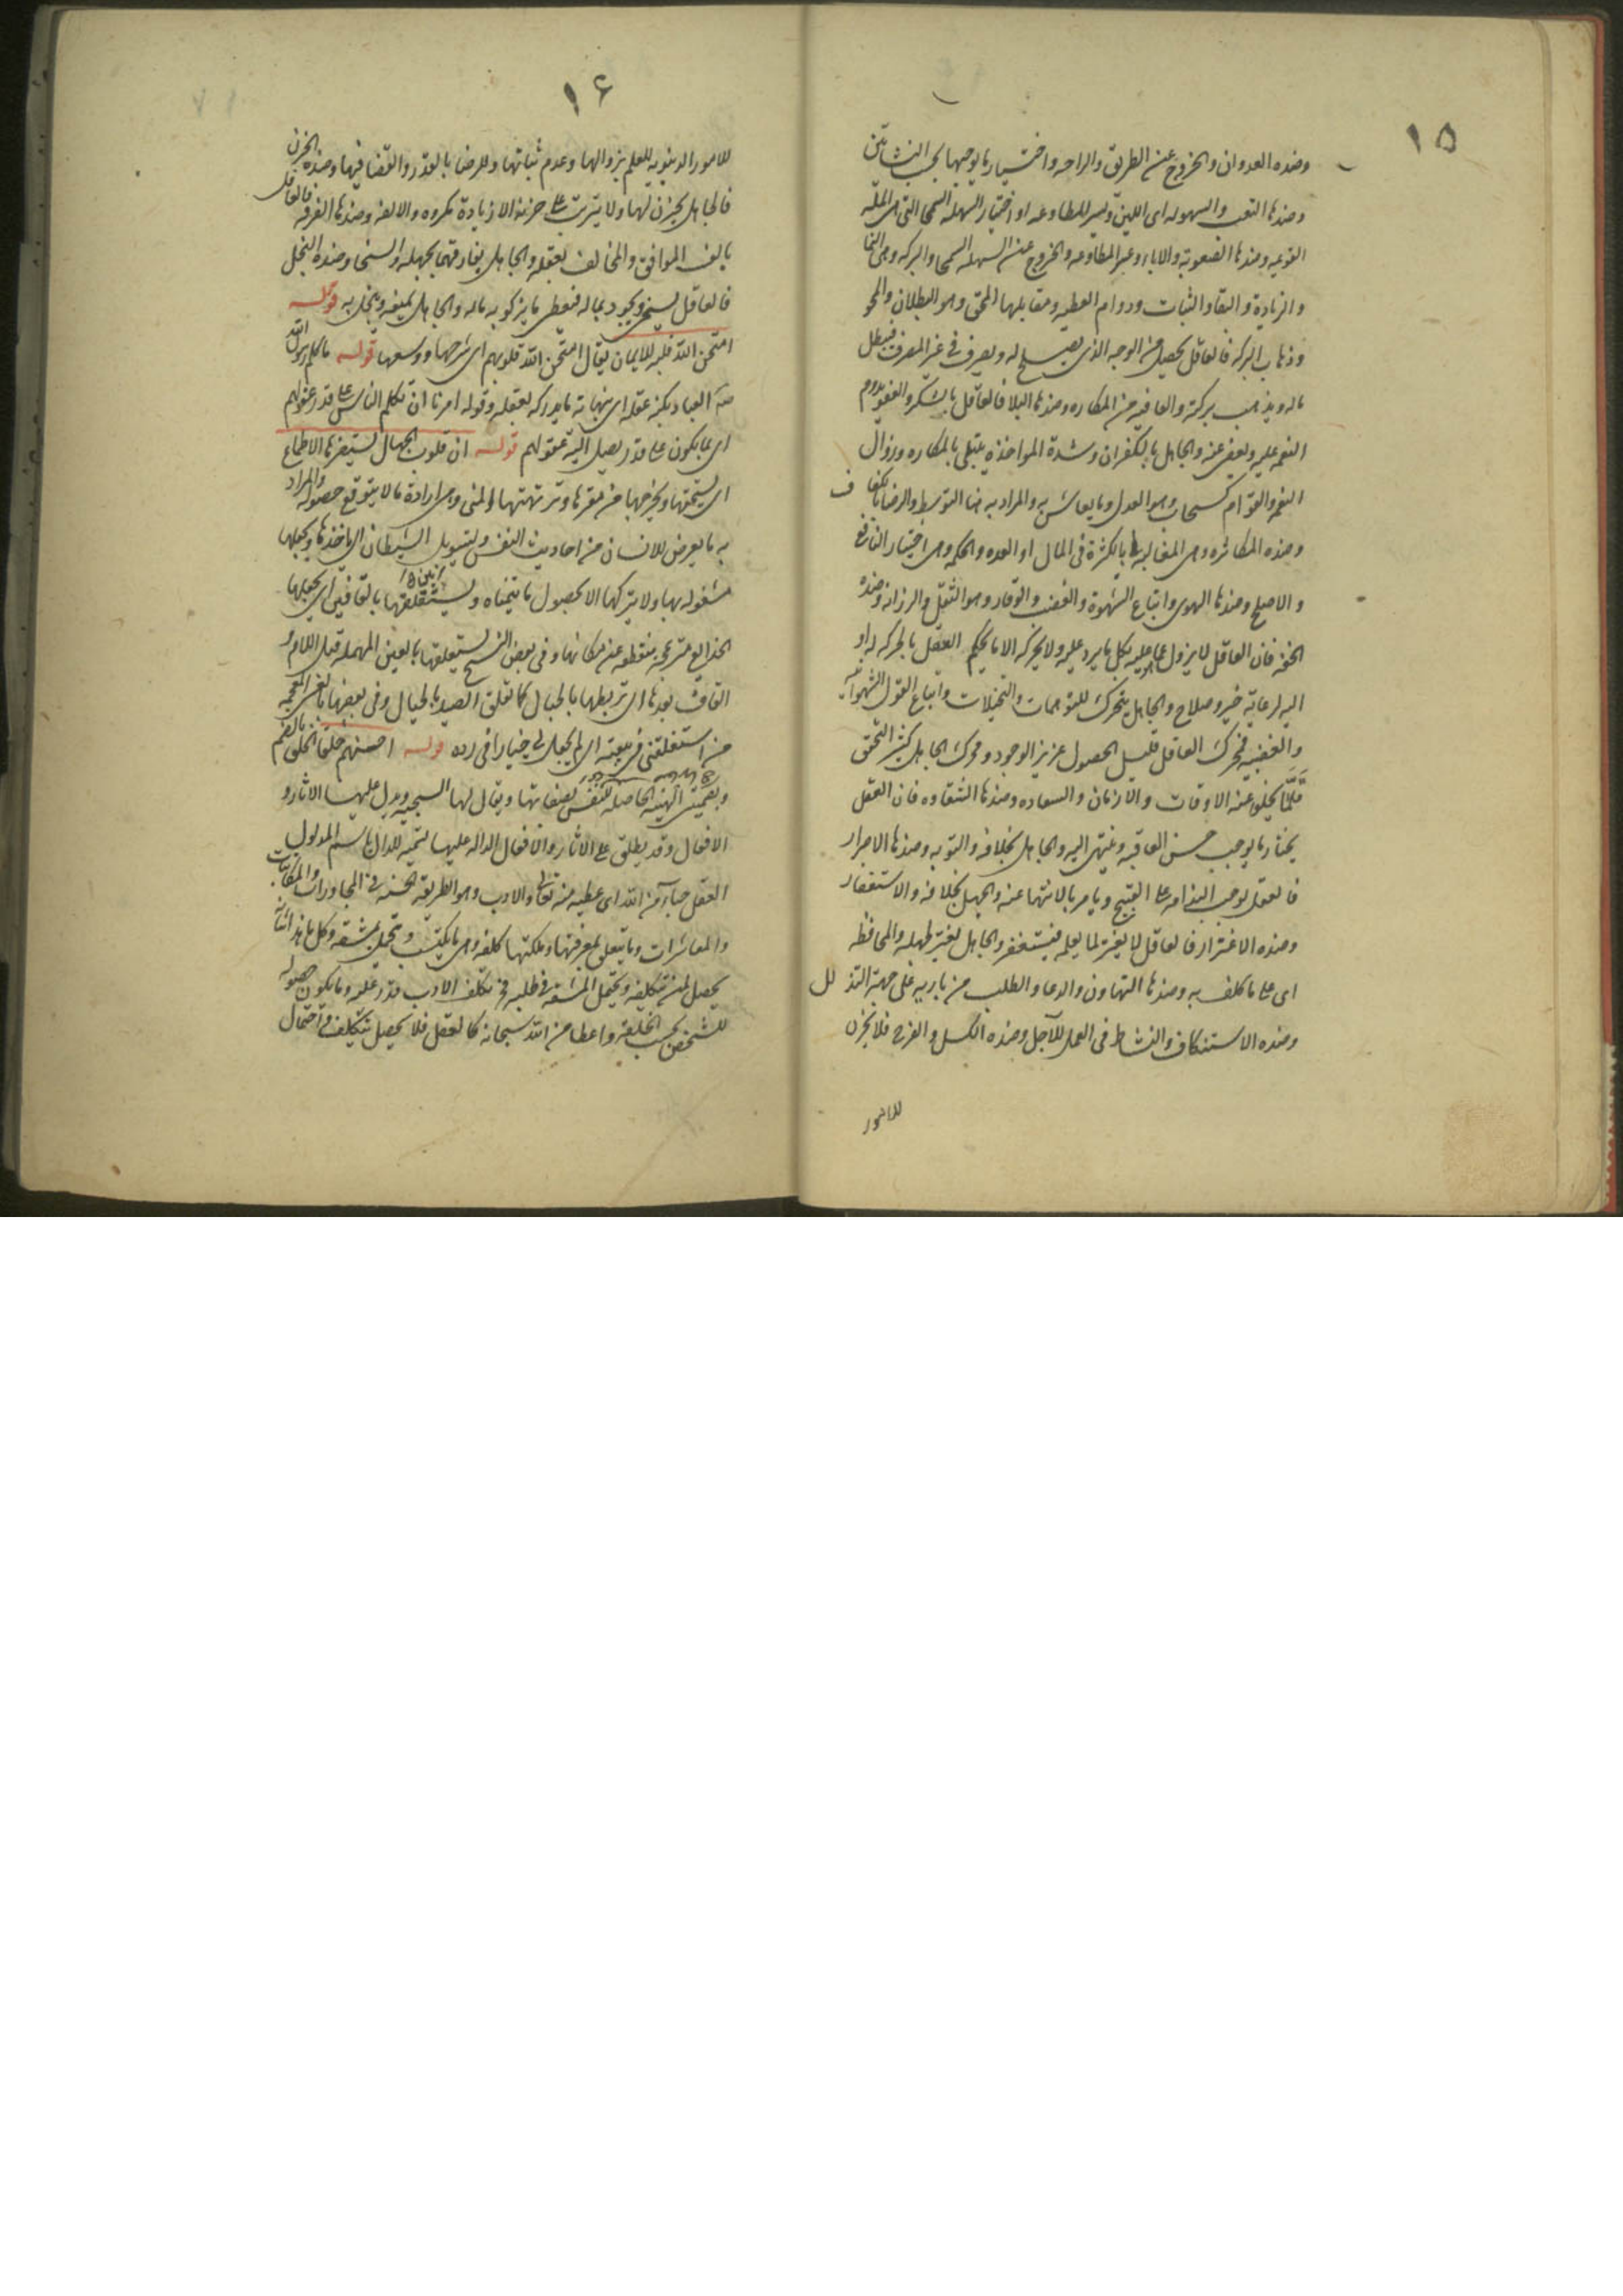 ١٥
وضده العدوان والخروج عن الطريق والراحه واختيار ما يوجبها بحسب النشاتين
وضدها التعب والسهوله اى اللين ويسر المطاوعه او اختيار السهله السمحا التى هى الملّه
القويه وضدها الصعوبة والاباء وعسر المطاوعه والخروج عن السهله السمحا والبركه وهى النما
والزيادة والبقا والثبات ودوام العطيه ومقابلها المحق وهو البطلان والمحو
وذهاب البركه فالعاقل يحصل من الوجه الذى يصلح له ويصرف فى المصرف فيبطل
ماله ويذهب بركته والعافيه من المكاره وضدها البلا فالعاقل بالشكر والعفو يدوم
النعم عليه ويعفى عنه والجاهل بالكفران وشدة المواخذه يبتلى بالمكاره وزوال
النعم والقوام كسحاب وهو العدل وما يعاش به والمراد به هنا التوسط والرضا بالكفاف
وضده المكاثره وهى المغالبه بالكثرة فى المال او العدد والحكمه وهى اختيار النافع
والاصلح وضدها الهوى واتباع الشهوة والغضب والوقار وهو الثقل والرزانه وضده
الخفه فان العاقل لا يزول عما هو عليه بكل ما يرد عليه ولا يحركه الا ما يحكم العقل بالحركه له او
اليه لرعاية خير وصلاح والجاهل يتحرك للتوهمات والتخيلات واتباع القوى الشهوانيه
والغضبيه فمحرك العاقل قليل الحصول عزيز الوجود ومحرك الجاهل كثير التحقق
قلّما يخلو عنه الاوقات والازمان والسعاده وضدها الشقاوه فان العقل
يختار ما يوجب حسن العاقبه وينتهى اليه والجاهل بخلافه والتوبه وضدها الاصرار
فالعقل يوجب الندامه على القبيح ويامر بالانتها عنه والجهل بخلافه والاستغفار
وضده الاغترار فالعاقل لا يغتر لما يعلمه فيستغفر والجاهل يغتر لجهله والمحافظه
اى على ما كلف به وضدها التهاون والدعا والطلب من باريه على جهة التذلل
وضده الاستنكاف والنشاط فى العمل للآجل وضده الكسل والفرح فلا يحزن
للامور
١٦
للامور الدنيويه للعلم بزوالها وعدم ثباتها وللرضا بالقدر والقضا فيها وضده الحزن
فالجاهل يحزن لها ولا يترتب على حزنه الا زيادة مكروه والالفه وضدها الفرقه فالعاقل
يالف الموافق والمخالف بعقله والجاهل يفارقهما بجهله والسخا وضده البخل
فالعاقل يسخى ويجود بماله فيعطى ما يزكو به ماله والجاهل يمنعه ويبخل به قوله
امتحن الله قلبه للايمان يقال امتحن الله قلوبهم اى شرحها ووسعها قوله ما كلم رسول الله
العباد بكنه عقله اى بنهاية ما يدركه بعقله وقوله امرنا ان نكلم الناس على قدر عقولهم
اى بما يكون على قدر يصل اليه عقولهم قوله ان قلوب الجهال تستفزها الاطماع
اى تستخفها ويخرجها من مقرها وترتهنها المنى وهى ارادة ما لا يتوقع حصوله والمراد
به ما يعرض للانسان من احاديث النفس وتسويل الشيطان اى ياخذها ويجعلها
مشغوله بها ولا يتركها الا بحصول ما يتمناه وتستقلقها بالقافين اى يجعلها
منقطعه عن مكانها وفى بعض النسخ تستعلقها بالعين المهمله قبل اللام و
القاف بعدها اى تربطها بالحبال كما تعلق الصيد بالحبال وفى بعضها بالغين المعجمه
من استغلقنى فى بيعته اى لم يجعل لى خيارا فى رده قوله احسنهم خلقا الخلق بالضم
وبضمتين الهيئه الحاصله للنفس بصفاتها ويقال لها السجيه ويدل عليها الاثار و
الافعال وقد يطلق على الاثار والافعال الداله عليها تسميه للدال باسم المدلول
العقل حباء من الله اى عطيه منه تعالى والادب وهو الطريقه الحسنه فى المحاورات والمكاتبات
والمعاشرات وما يتعلق بمعرفتها وملكتها كلفه وهى ما يكتسب ويتحمل بمشقه وكل ما هذا شانه
يحصل لمن تكلفه ويحتمل المشقه فى طلبه فمن تكلف الادب قدر عليه وما يكون حصوله
للشخص بحسب الخلقه واعطا من الله سبحانه كالعقل فلا يحصل بتكلف واحتمال